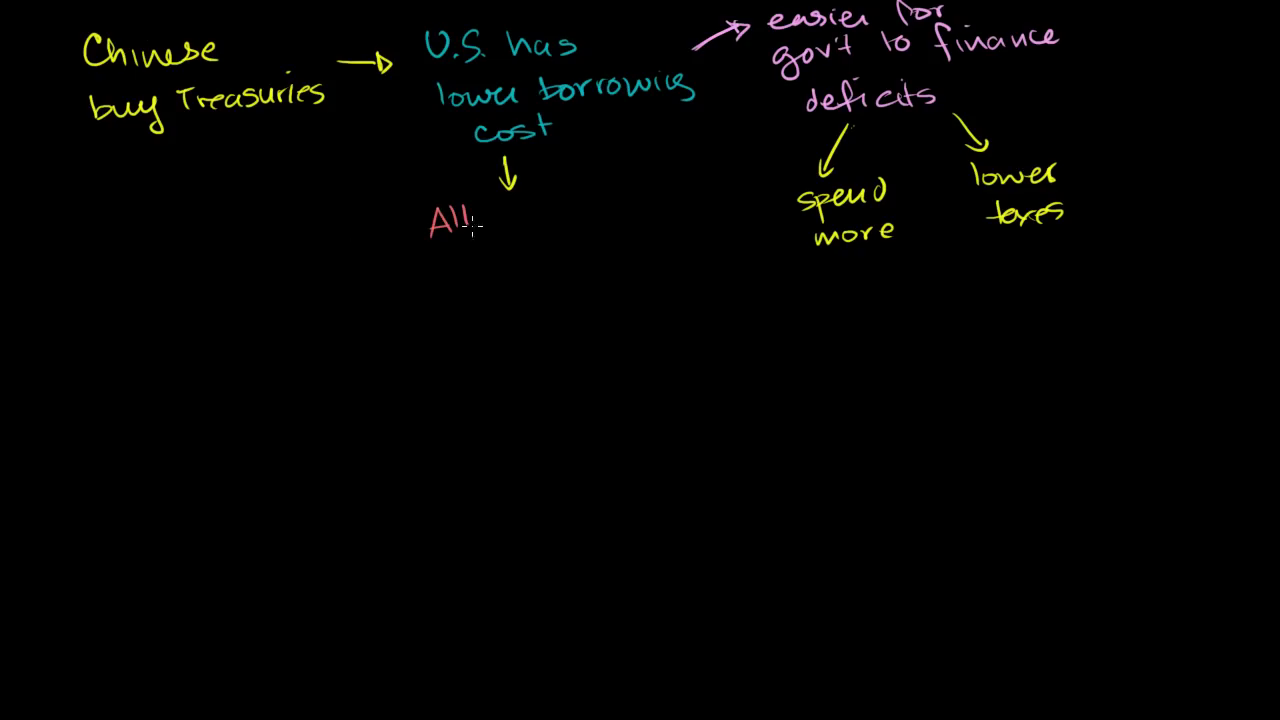 Chinese
buy Treasuries
U.S. has
lower borrowing
cost
easier for
gov't to finance
deficits
spend
more
lower
taxes
All